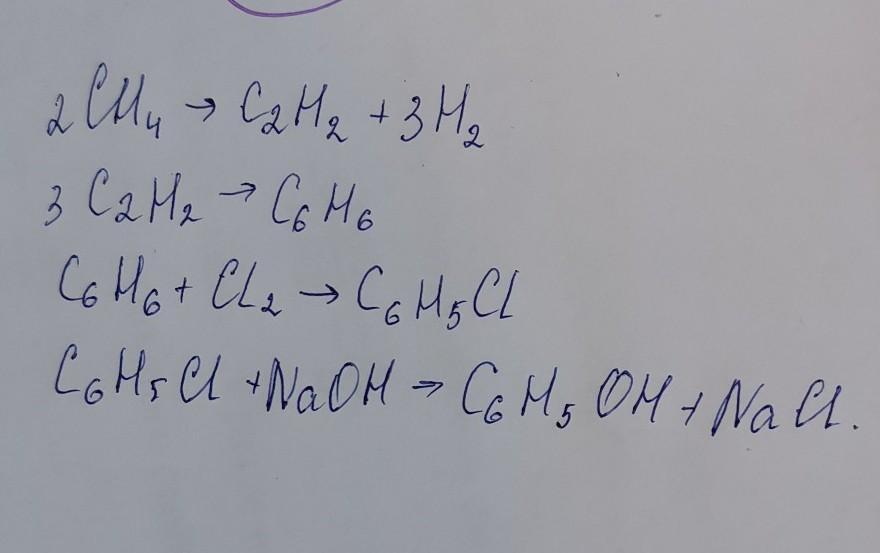 2CH₄ → C₂H₂ + 3H₂
3C₂H₂ → C₆H₆
C₆H₆ + Cl₂ → C₆H₅Cl
C₆H₅Cl + NaOH → C₆H₅OH + NaCl.